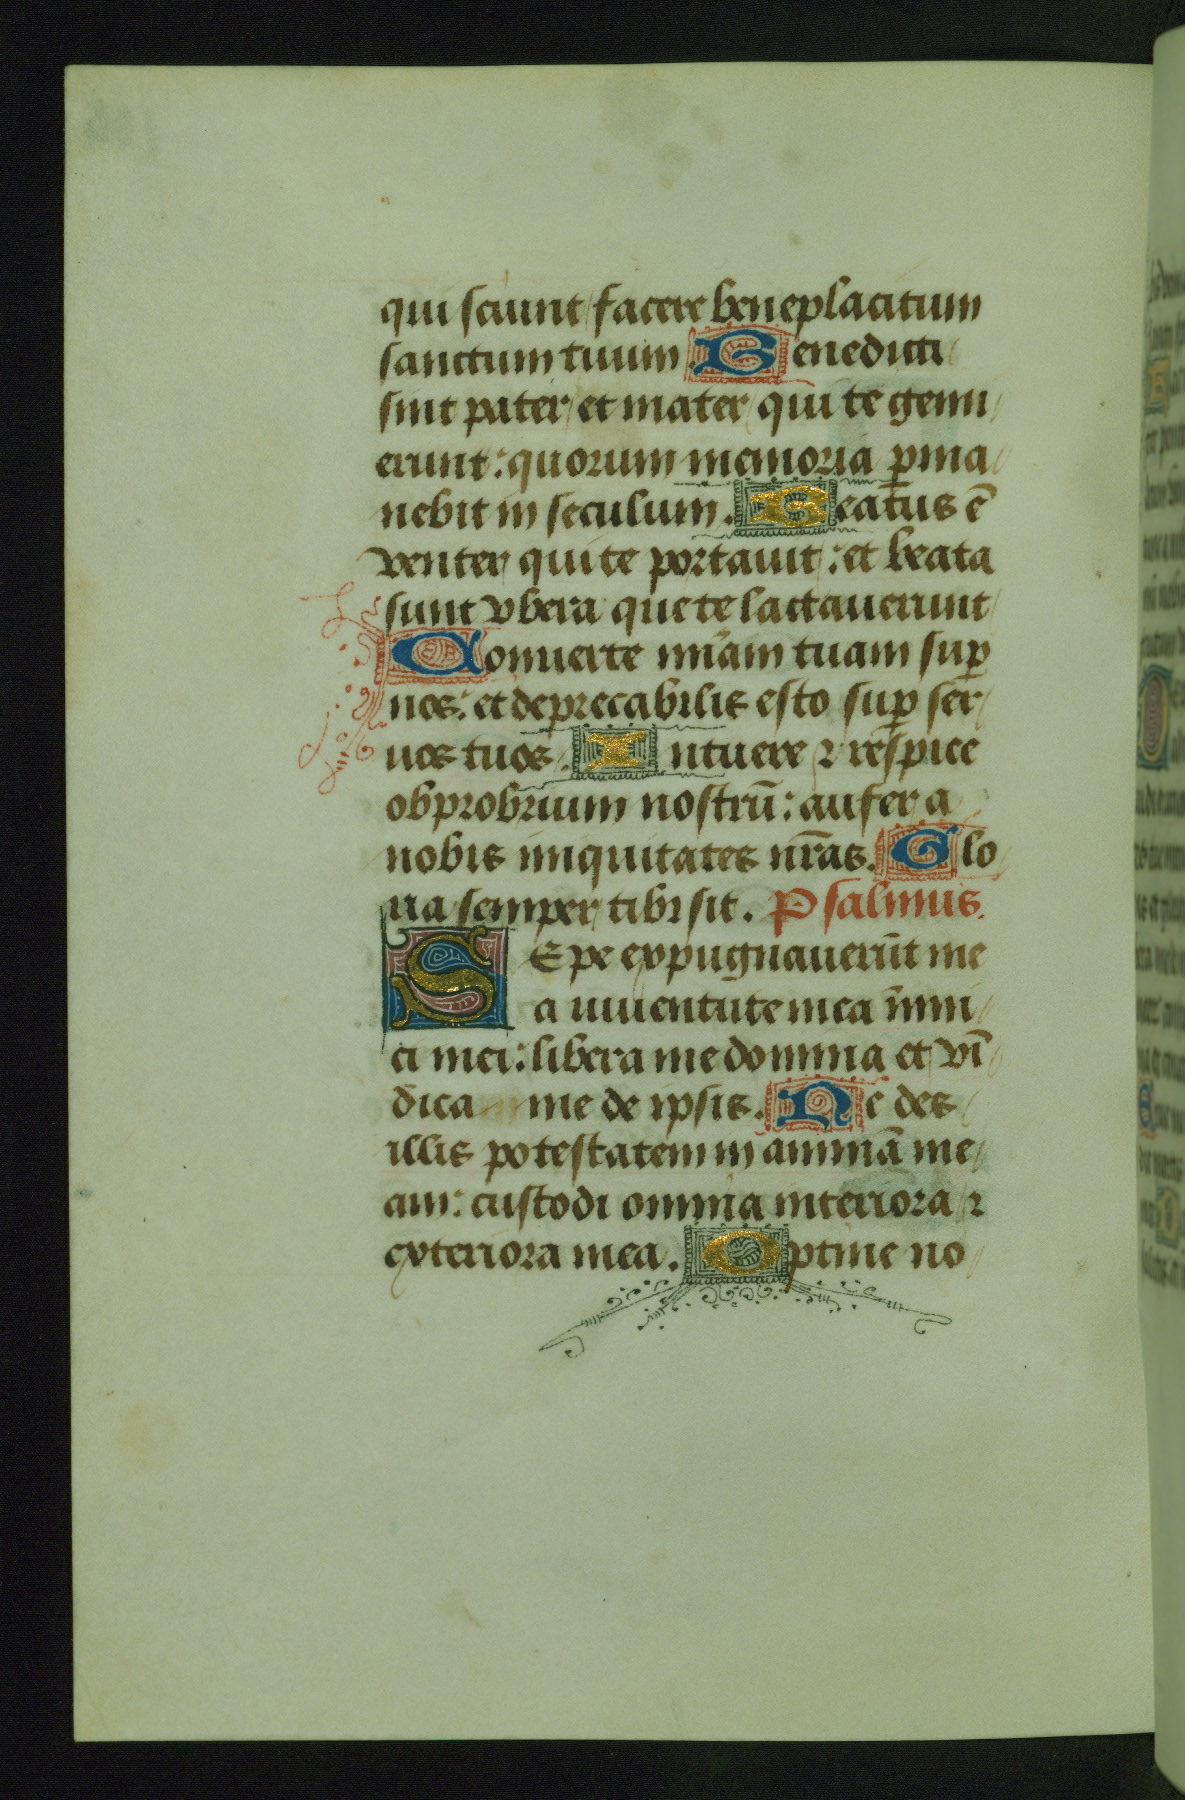 qui sciunt facere beneplacitum
sanctum tuum. Benedicti
sint pater et mater qui te genu
erunt: quorum memoria ꝑma
nebit in seculum. Beatus ē
venter qui te portauit: et beata
sunt vbera que te lactauerunt
Conuerte mīam tuam suꝑ
nos: et deprecabilis esto suꝑ ser
uos tuos. Intuere ⁊ respice
obprobrium nostrū: aufer a
nobis iniquitates nr̄as. Glo
ria semper tibi sit. Psalmus.
SEpe expugnauerūt me
a iuuentute mea inimi
ci mei: libera me domina et vī
dica me de ipsis. Ne des
illis potestatem in animā me
am: custodi omnia interiora ⁊
exteriora mea. Optine no